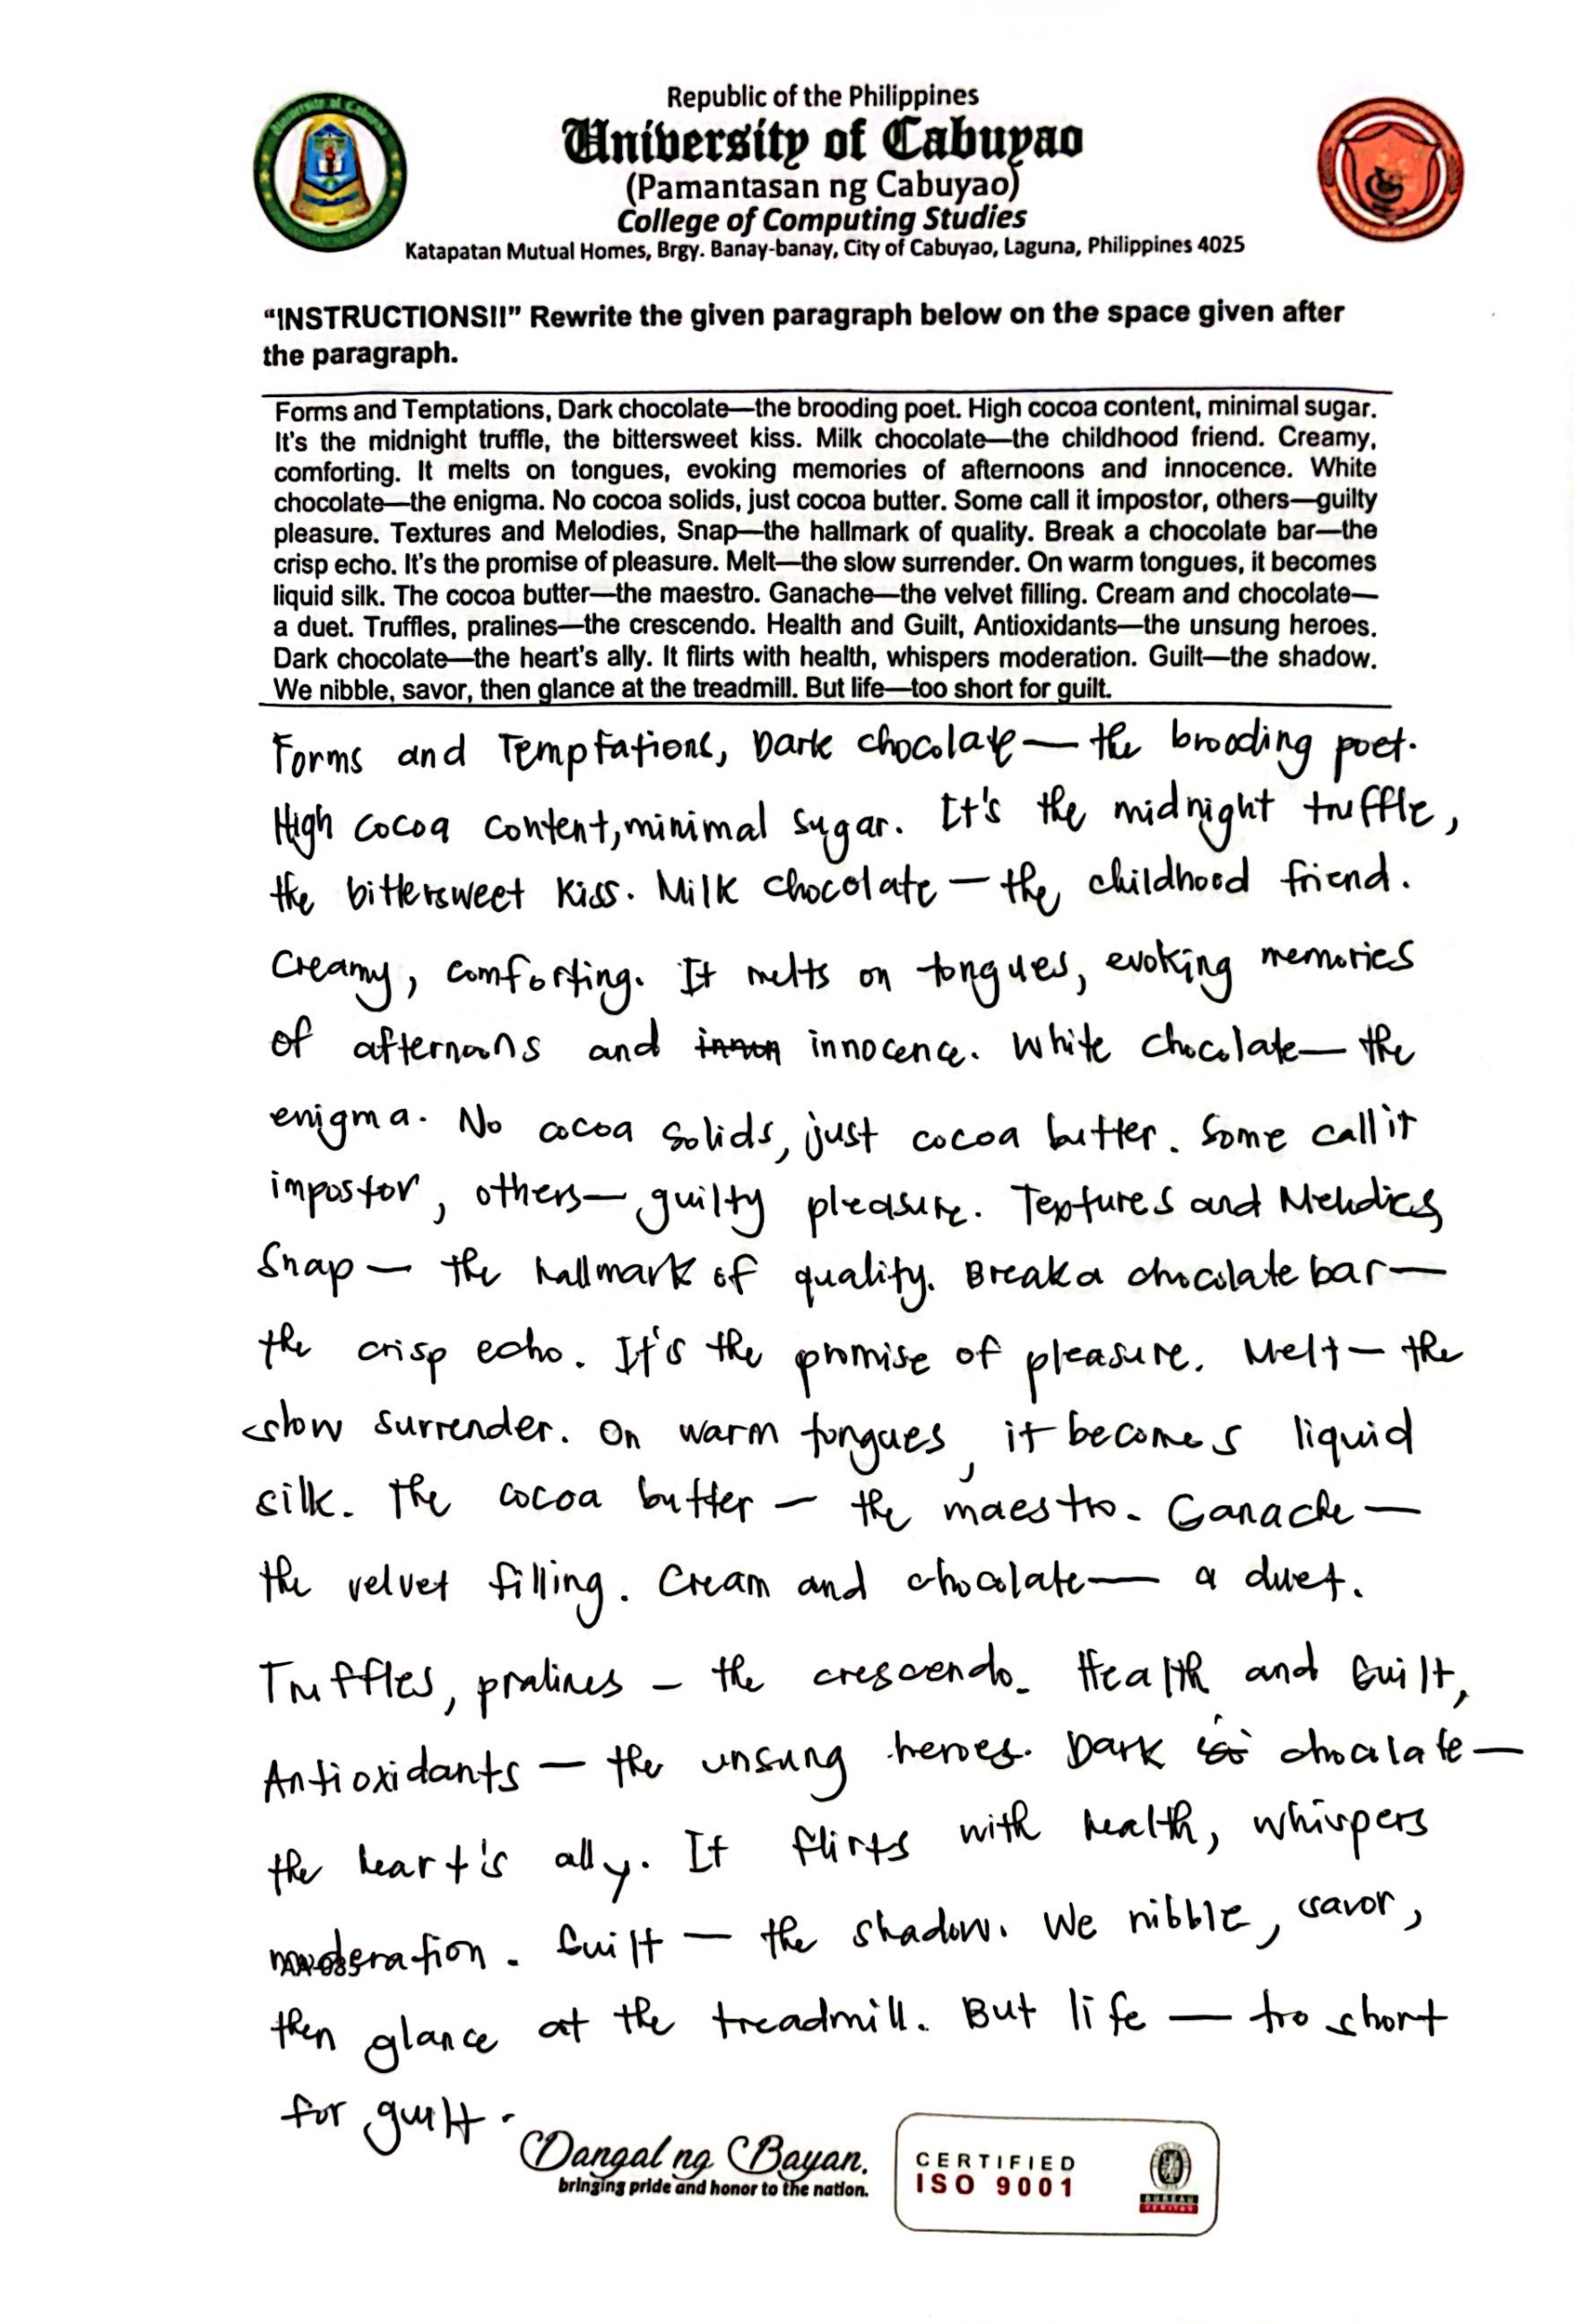 Republic of the Philippines
University of Cabuyao
(Pamantasan ng Cabuyao)
College of Computing Studies
Katapatan Mutual Homes, Brgy. Banay-banay, City of Cabuyao, Laguna, Philippines 4025
“INSTRUCTIONS!!” Rewrite the given paragraph below on the space given after
the paragraph.
Forms and Temptations, Dark chocolate—the brooding poet. High cocoa content, minimal sugar.
It's the midnight truffle, the bittersweet kiss. Milk chocolate—the childhood friend. Creamy,
comforting. It melts on tongues, evoking memories of afternoons and innocence. White
chocolate—the enigma. No cocoa solids, just cocoa butter. Some call it impostor, others—guilty
pleasure. Textures and Melodies, Snap—the hallmark of quality. Break a chocolate bar—the
crisp echo. It's the promise of pleasure. Melt—the slow surrender. On warm tongues, it becomes
liquid silk. The cocoa butter—the maestro. Ganache—the velvet filling. Cream and chocolate—
a duet. Truffles, pralines—the crescendo. Health and Guilt, Antioxidants—the unsung heroes.
Dark chocolate—the heart's ally. It flirts with health, whispers moderation. Guilt—the shadow.
We nibble, savor, then glance at the treadmill. But life—too short for guilt.
Forms and Temptations, Dark chocolate — the brooding poet.
High cocoa content, minimal sugar. It's the midnight truffle,
the bittersweet kiss. Milk chocolate — the childhood friend.
Creamy, comforting. It melts on tongues, evoking memories
of afternoons and innocence. White chocolate — the
enigma. No cocoa solids, just cocoa butter. Some call it
impostor, others — guilty pleasure. Textures and Melodies,
Snap — the hallmark of quality. Break a chocolate bar —
the crisp echo. It's the promise of pleasure. Melt — the
slow surrender. On warm tongues, it becomes liquid
silk. The cocoa butter — the maestro. Ganache —
the velvet filling. Cream and chocolate — a duet.
Truffles, pralines — the crescendo. Health and Guilt,
Antioxidants — the unsung heroes. Dark chocolate —
the heart's ally. It flirts with health, whispers
moderation. Guilt — the shadow. We nibble, savor,
then glance at the treadmill. But life — too short
for guilt.
Dangal ng Bayan.
bringing pride and honor to the nation.
CERTIFIED
ISO 9001
BUREAU
VERITAS